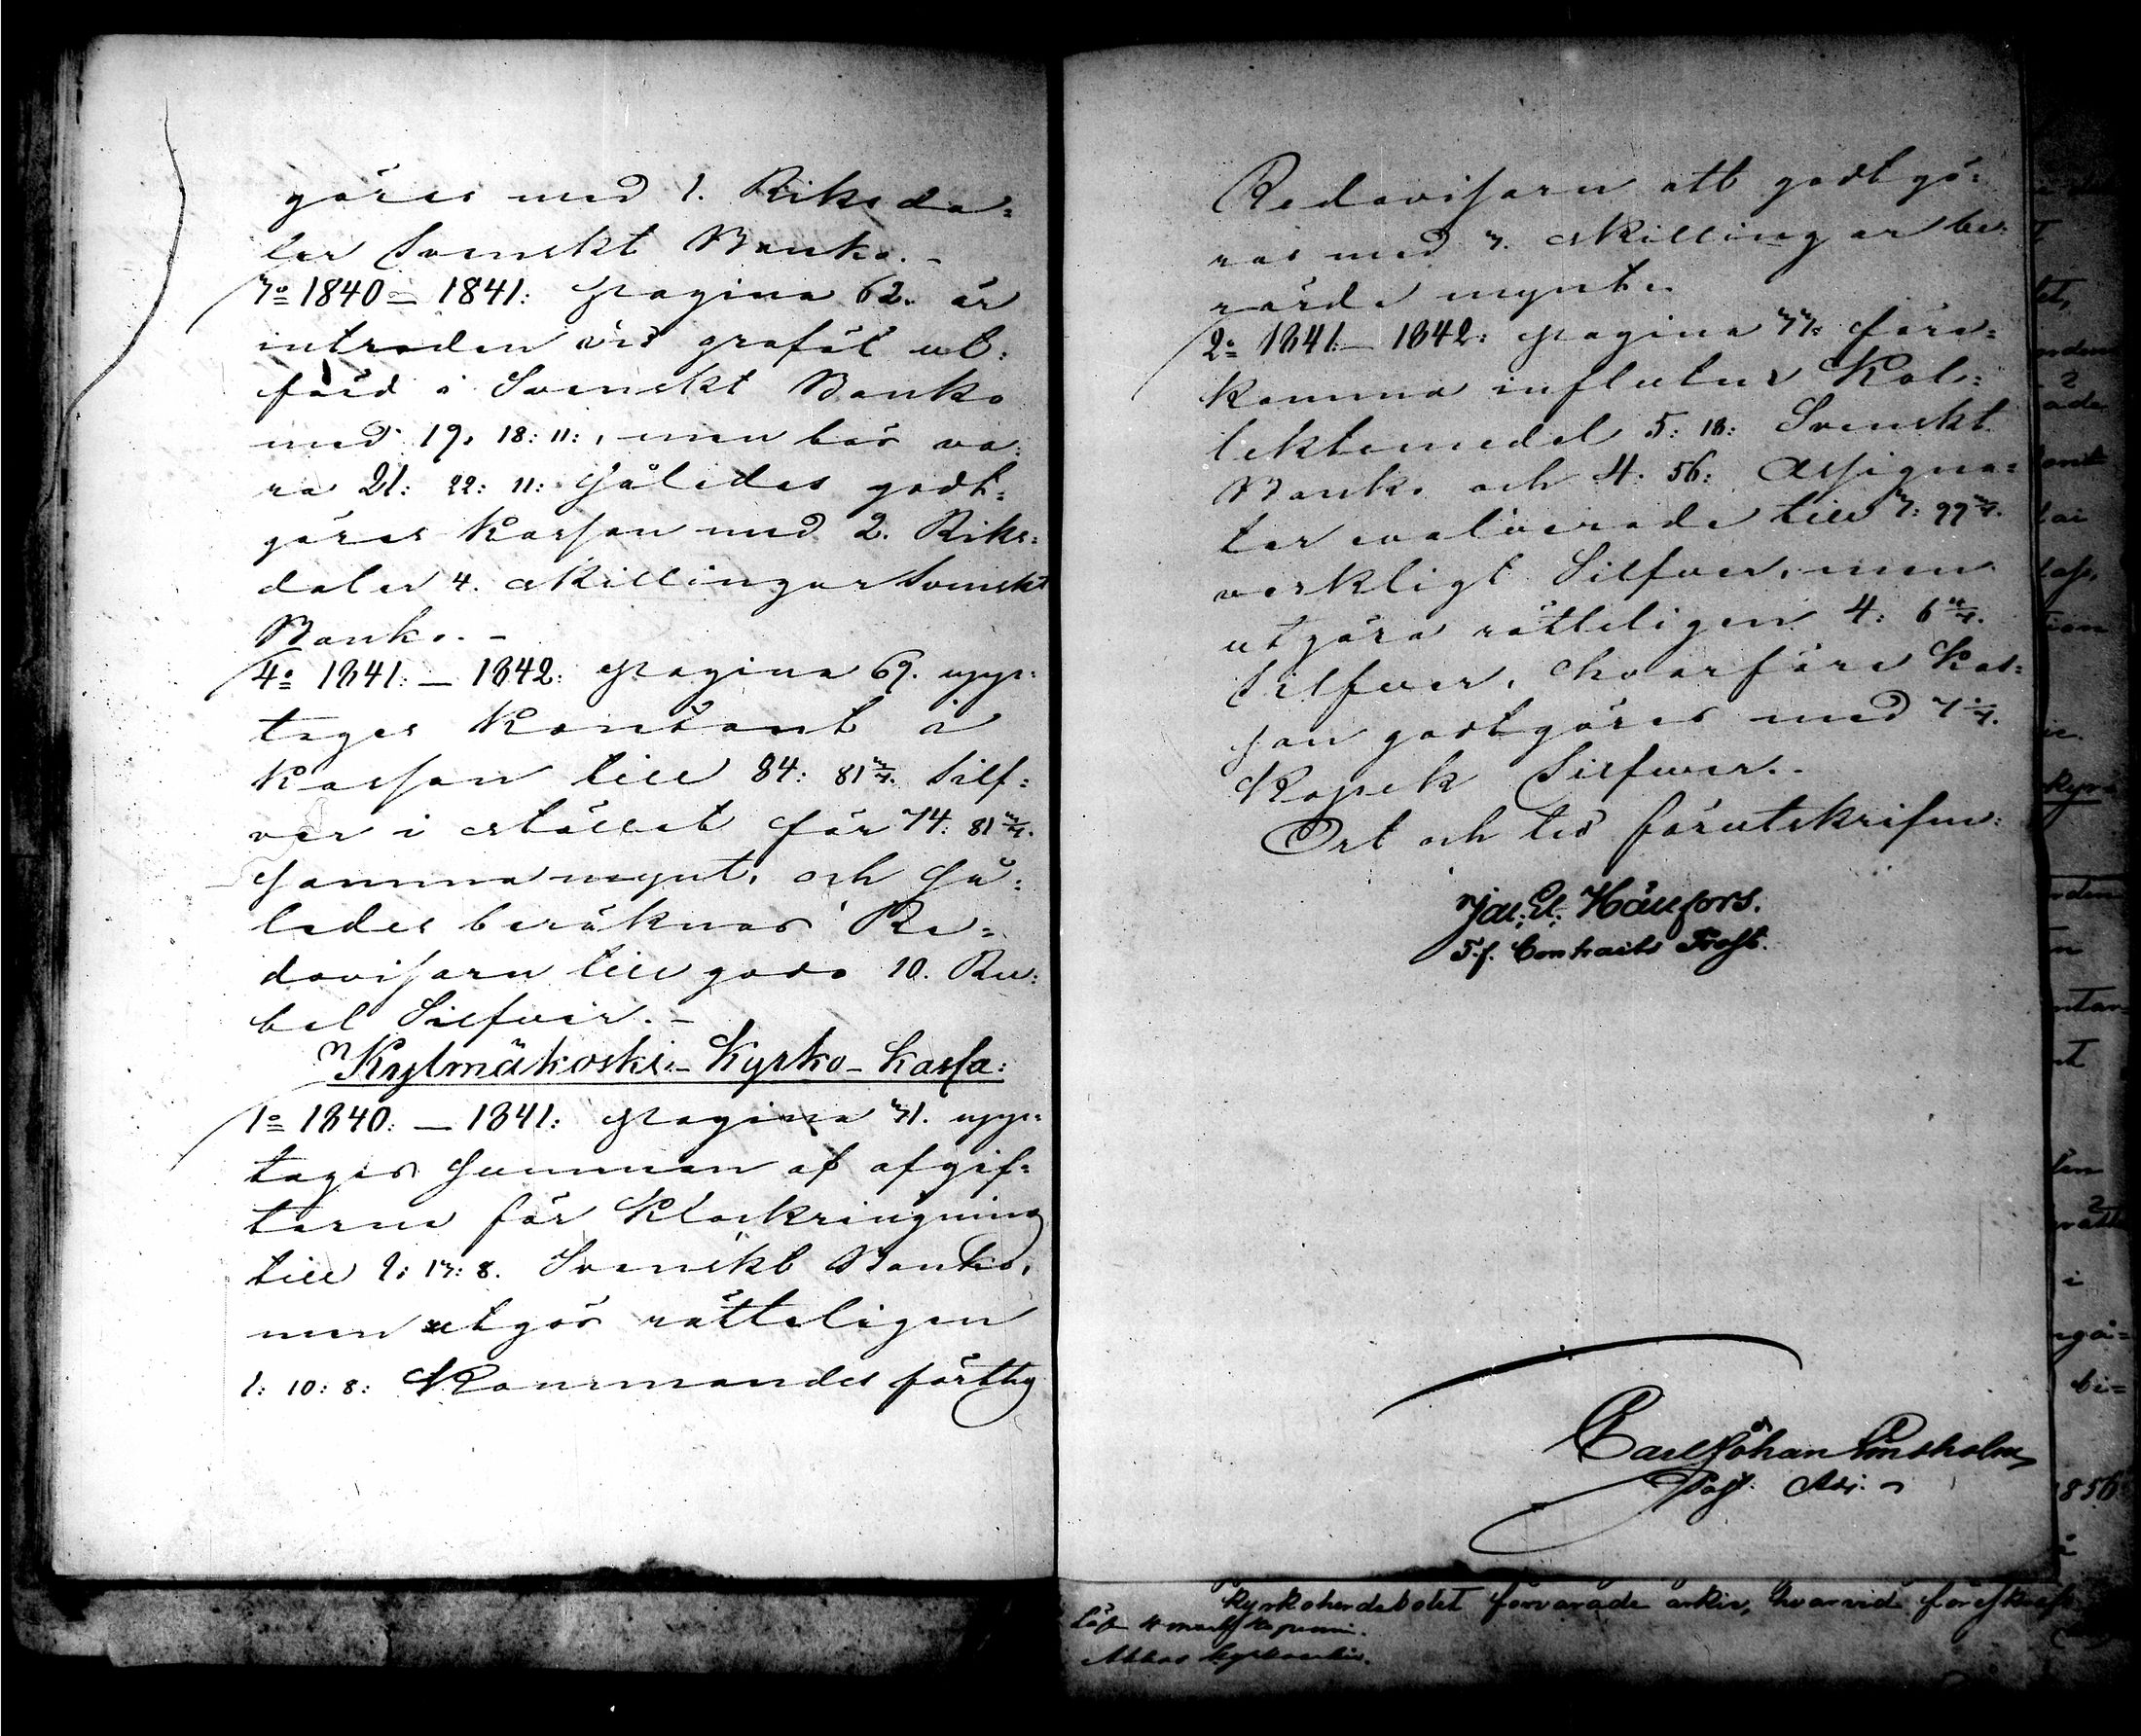 göres med 1. Riksda=
ler Svenskt Banko. –
3o 1840 – 1841: Pagina 62. är
intraden vid graföl ut=
förd i Svenskt Banko
med 19. 18: 11:, men bör va=
ra 21: 22: 11: Således godt=
göres Kassan med 2. Riks=
daler 4. skillingar Svenskt
Banko. –
4o 1841. – 1842: Pagina 69. upp=
tages Kontant i
Kassan till 84: 81 3/7. Silf=
ver i stället för 74: 81 3/7.
samma mynt, och så=
ledes beräknas Re=
dovisaren till godo 10. Ru=
bel Silfver. –
Kylmäkoski Kyrko-kassa:
1o 1840. – 1841: Pagina 71. upp=
tages Summan af afgif=
terne för Klockringning
till 1: 17: 8. Svenskt Banko,
men utgör rätteligen
1: 10: 8: Kommandes förthy
Redovisaren att godtgö=
ras med 7. skillingar be=
rörde mynt.
2o 1841. – 1842: Pagina 77: före=
komma influtne Kol=
lektmedel 5: 18: Svenskt
Banko och 4. 56: Assigna=
ter evalverade till 3: 99
verkligt Silfver, men
utgöra rätteligen 4: 6
Silfver, hvarföre Kas=
san godtgöres med 7
Kopek Silfver. –
Ort och tid förutskrifne:
Jac. El. Hällfors.
T.f. Contracts Prost.
Carl Johan Lindholm
Past. Adj.
kyrkoherdebolet förvarade arkiv, hvarvid föreskrefs